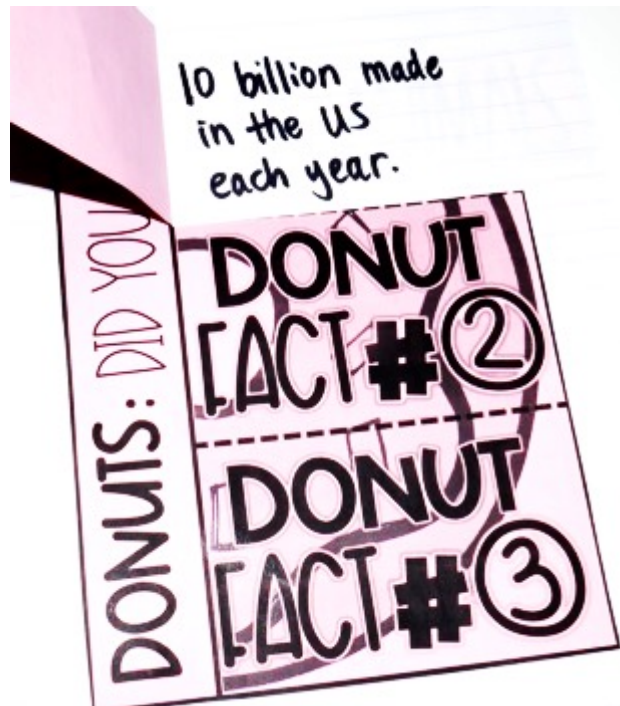 10 billion made
in the US
each year.
DONUTS: DID YOU
DONUT
FACT #2
DONUT
FACT #3